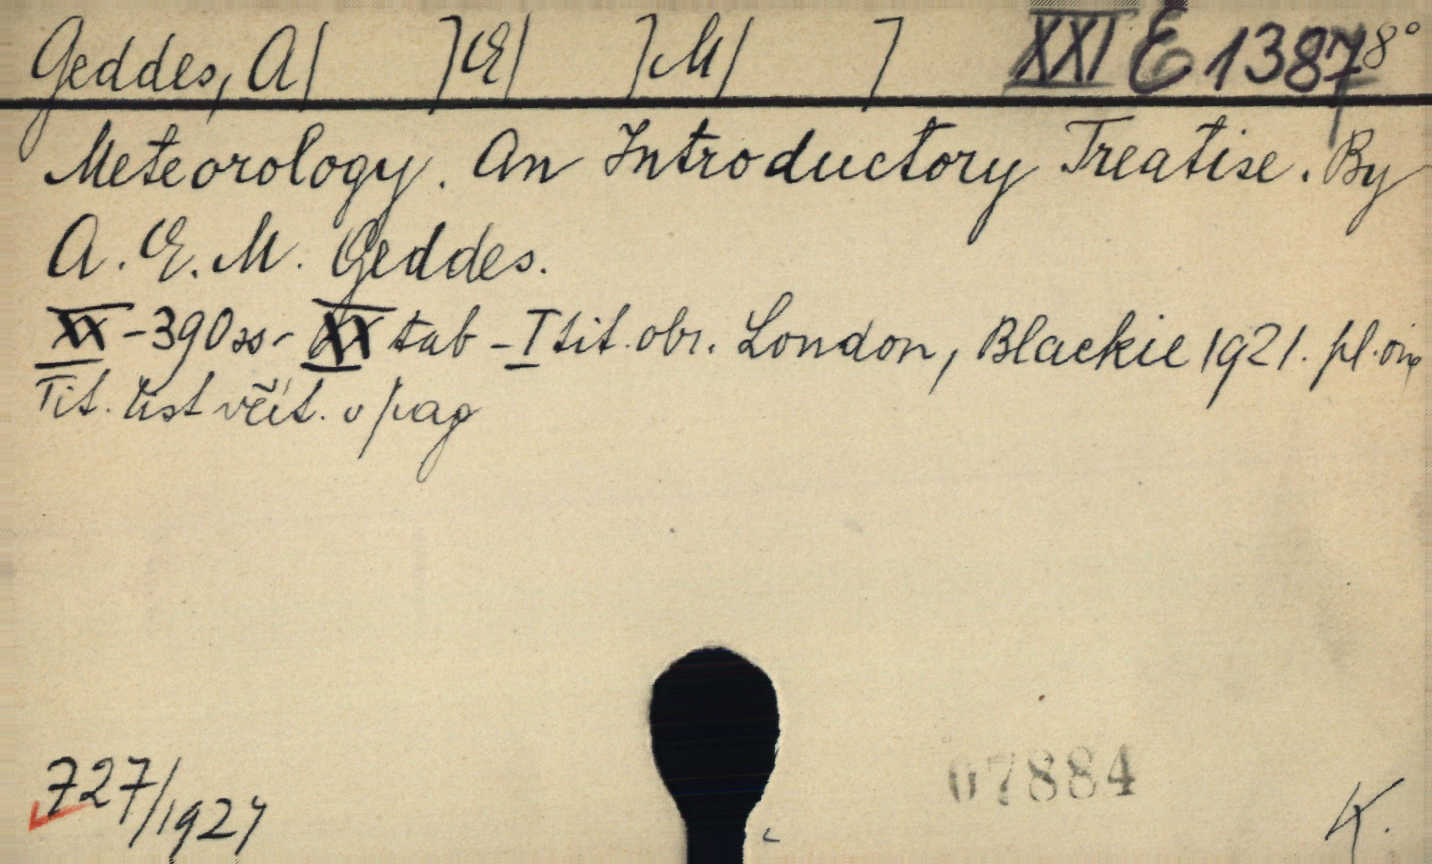 Geddes, A[ ]E[ ]M[ ] XXI E 1387 8°
Meteorology. An Introductory Treatise. By
A. E. M. Geddes.
XX-390 ss - XX tab - I tit. obr. London, Blackie 1921. pl. orig
Tit. list včít. v pag
727/1927
07884
K.